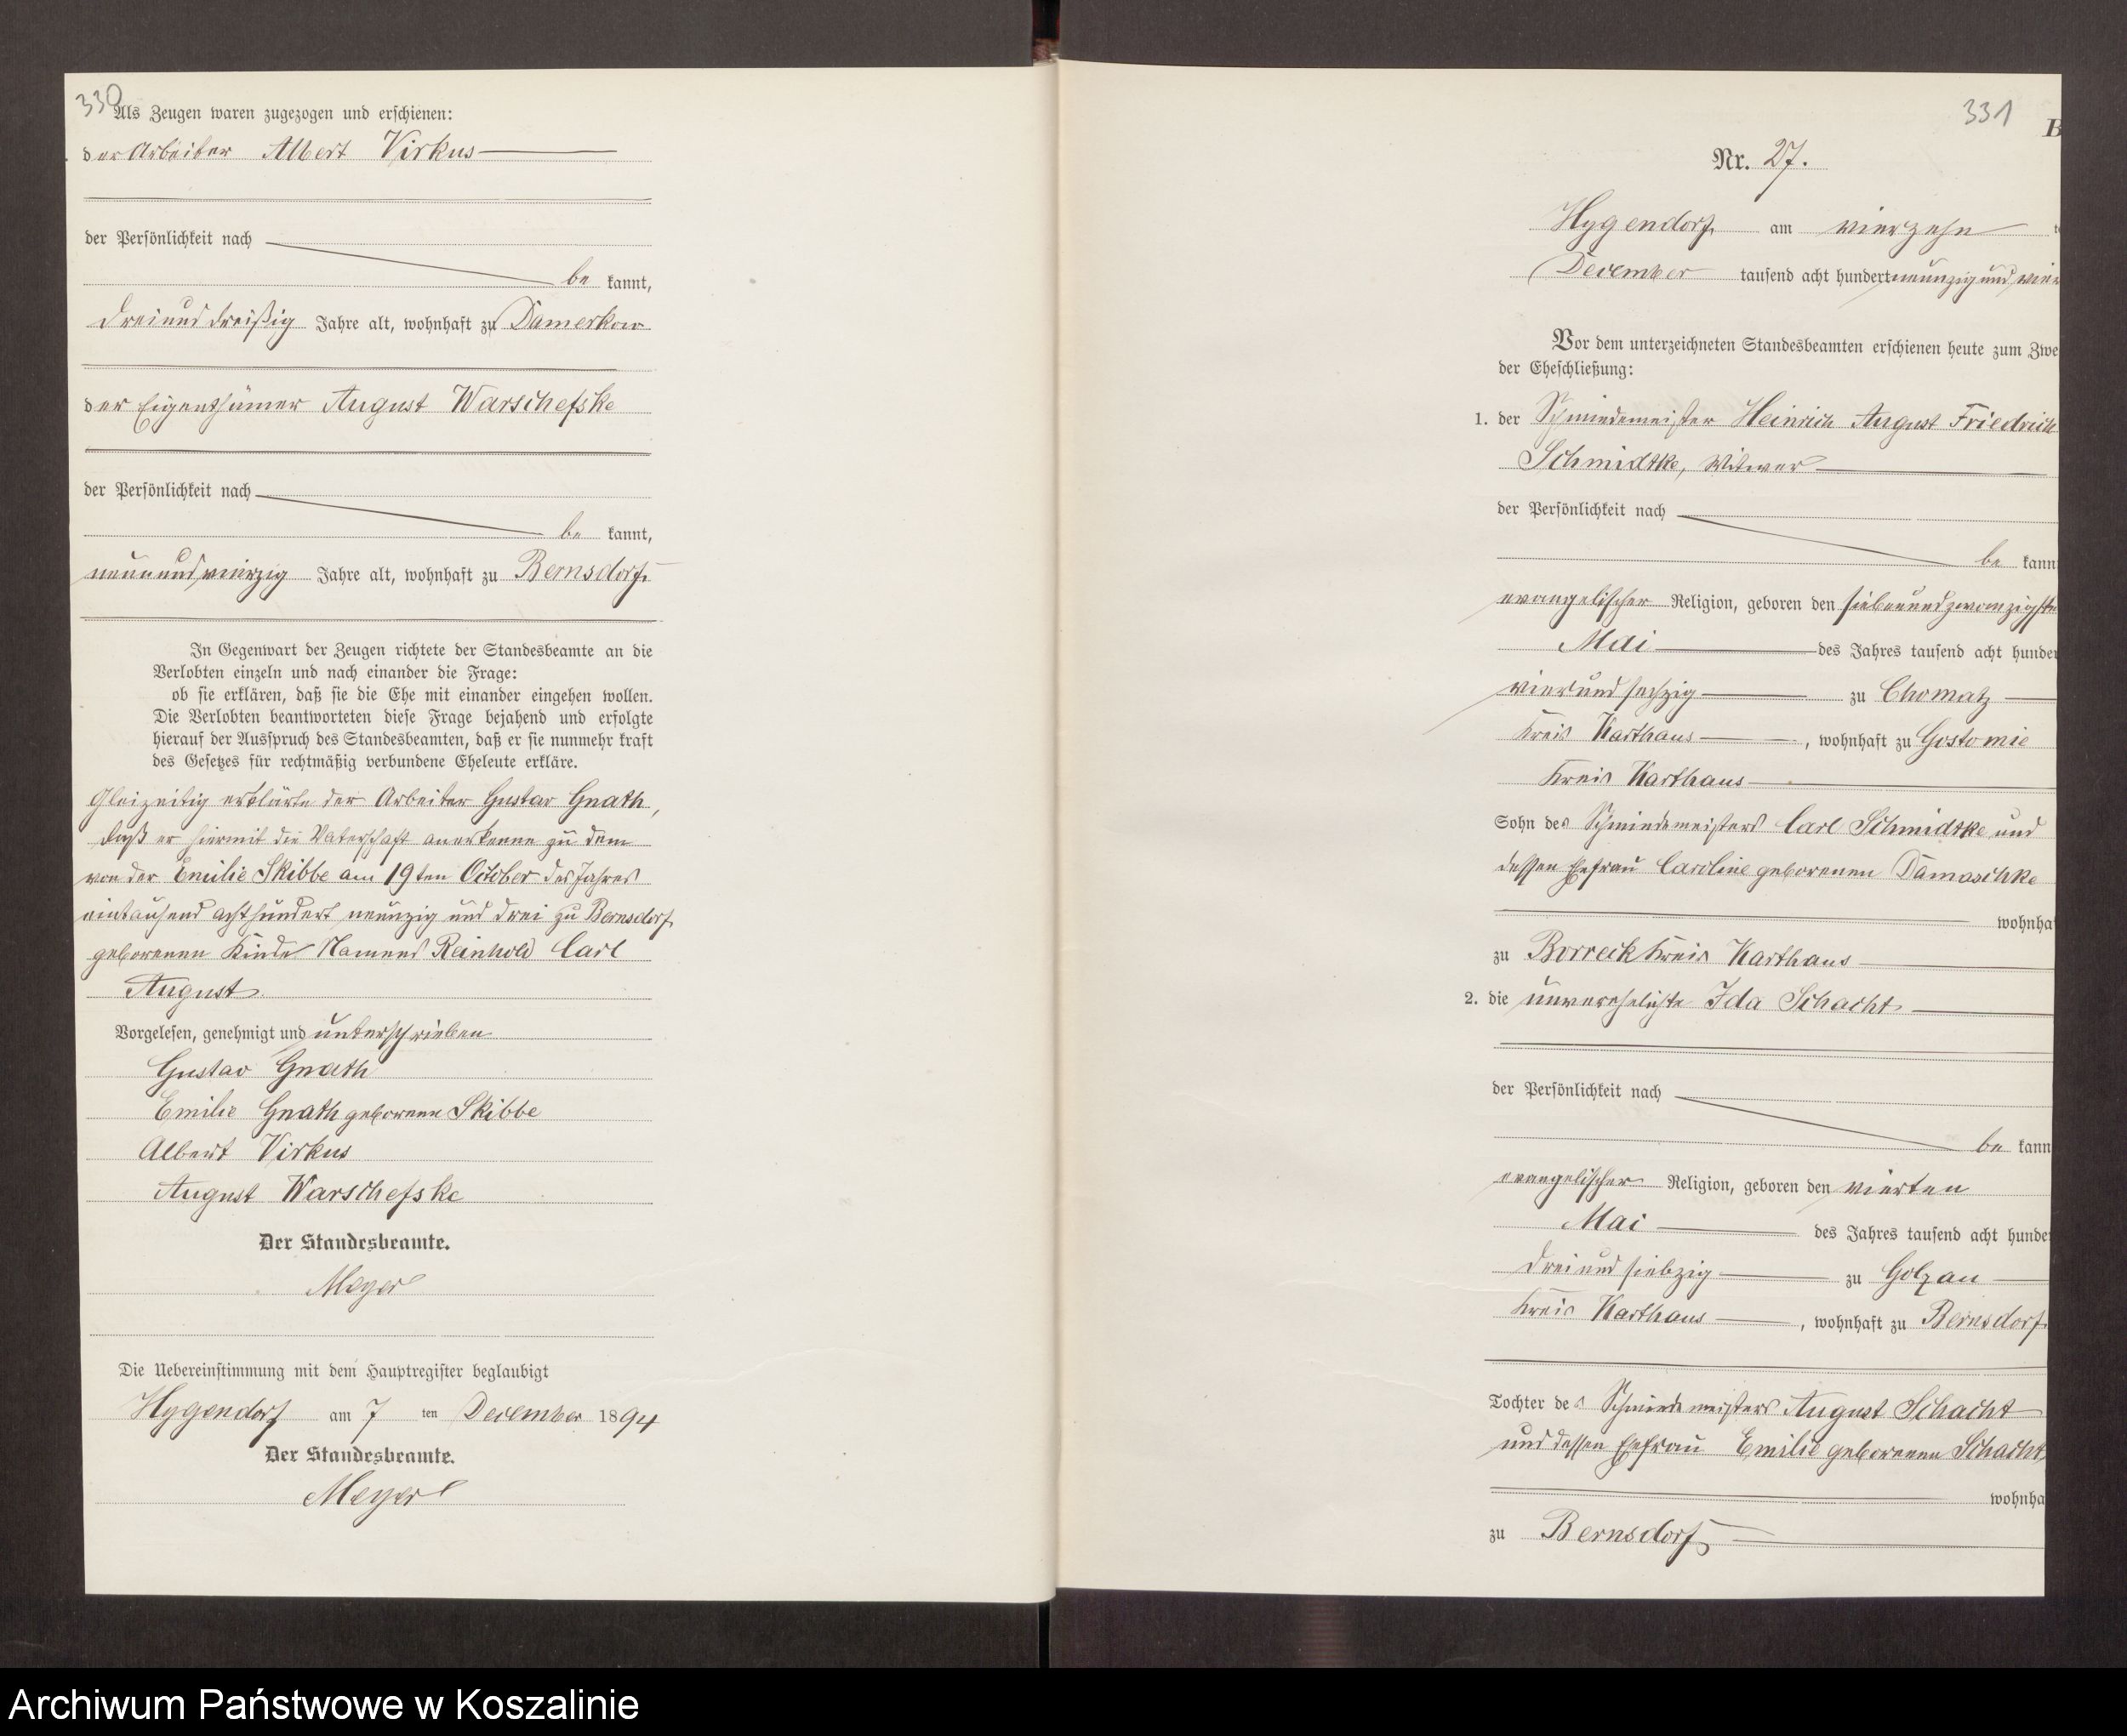 330
Als Zeugen waren zugezogen und erschienen:
der Arbeiter Albert Virkus
der Persönlichkeit nach
be kannt,
dreiunddreißig Jahre alt, wohnhaft zu Damerkow
der Eigenthümer August Warschefske
der Persönlichkeit nach
be kannt,
neunundvierzig Jahre alt, wohnhaft zu Bernsdorf.
In Gegenwart der Zeugen richtete der Standesbeamte an die
Verlobten einzeln und nach einander die Frage:
ob sie erklären, daß sie die Ehe mit einander eingehen wollen.
Die Verlobten beantworteten diese Frage bejahend und erfolgte
hierauf der Ausspruch des Standesbeamten, daß er sie nunmehr kraft
des Gesetzes für rechtmäßig verbundene Eheleute erkläre.
Gleizeitig erklärte der Arbeiter Gustav Gnath,
daß er hiermit die Vaterschaft anerkenne zu dem
von der Emilie Skibbe am 19ten October des Jahres
eintausend achthundert neunzig und drei zu Bernsdorf
geborenen Kinde Namens Reinhold Carl
August.
Vorgelesen, genehmigt und unterschrieben
Gustav Gnath
Emilie Gnath geborene Skibbe
Albert Virkus
August Warschefske
Der Standesbeamte.
Meyer
Die Uebereinstimmung mit dem Hauptregister beglaubigt
Hygendorf am 7 ten December 1894
Der Standesbeamte.
Meyer
331
B
Nr. 27.
Hygendorf am vierzehn te
December tausend acht hundert neunzig und vier
Vor dem unterzeichneten Standesbeamten erschienen heute zum Zwe
der Eheschließung:
1. der Schmiedemeister Heinrich August Friedrich
Schmidtke, Witwer
der Persönlichkeit nach
be kann
evangelischer Religion, geboren den siebenundzwanzigsten
Mai des Jahres tausend acht hunder
vierundsechzig zu Chomatz
Kreis Karthaus, wohnhaft zu Gostomie
Kreis Karthaus
Sohn des Schmiedemeisters Carl Schmidtke und
dessen Ehefrau Caroline geborenen Damaschke
wohnha
zu Borreck Kreis Karthaus
2. die unverehelichte Ida Schacht
der Persönlichkeit nach
be kann
evangelischer Religion, geboren den vierten
Mai des Jahres tausend acht hunde
dreiundsiebzig zu Golzau
Kreis Karthaus, wohnhaft zu Bernsdorf
Tochter des Schmiedemeisters August Schacht
und dessen Ehefrau Emilie geborenen Schacht,
wohnha
zu Bernsdorf
Archiwum Państwowe w Koszalinie